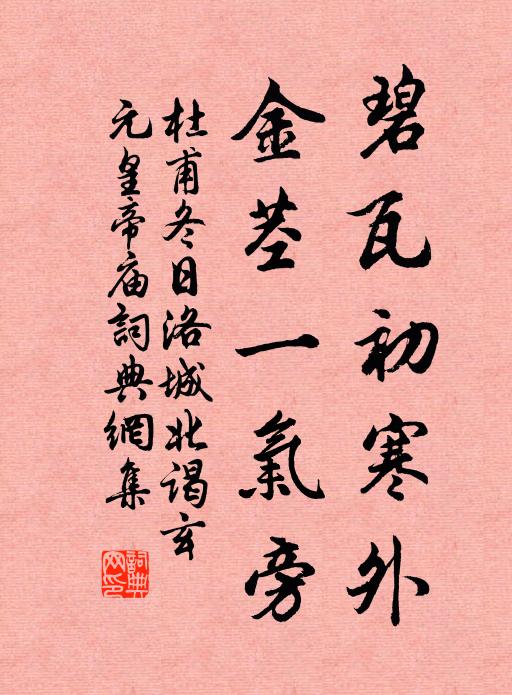 碧瓦初寒外
金茎一氣旁
杜甫冬日洛城北谒玄
元皇帝庙詞典網集
詞典
网印